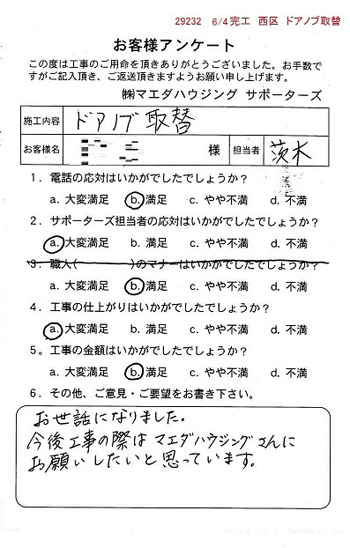 29232 6/4完工 西区 ドアノブ取替
お客様アンケート
この度は工事のご用命を頂きありがとうございました。お手数で
すがご記入頂き、ご返送頂きますようお願い申し上げます。
㈱マエダハウジング サポーターズ
施工内容 ドアノブ取替
お客様名 様 担当者 茨木
1．電話の応対はいかがでしたでしょうか？
a. 大変満足 b. 満足 c. やや不満 d. 不満
2．サポーターズ担当者の応対はいかがでしたでしょうか？
a. 大変満足 b. 満足 c. やや不満 d. 不満
3．職人( )のマナーはいかがでしたでしょうか？
a. 大変満足 b. 満足 c. やや不満 d. 不満
4．工事の仕上がりはいかがでしたでしょうか？
a. 大変満足 b. 満足 c. やや不満 d. 不満
5。工事の金額はいかがでしたでしょうか？
a. 大変満足 b. 満足 c. やや不満 d. 不満
6．その他、ご意見・ご要望をお書き下さい。
お世話になりました。
今後工事の際はマエダハウジングさんに
お願いしたいと思っています。